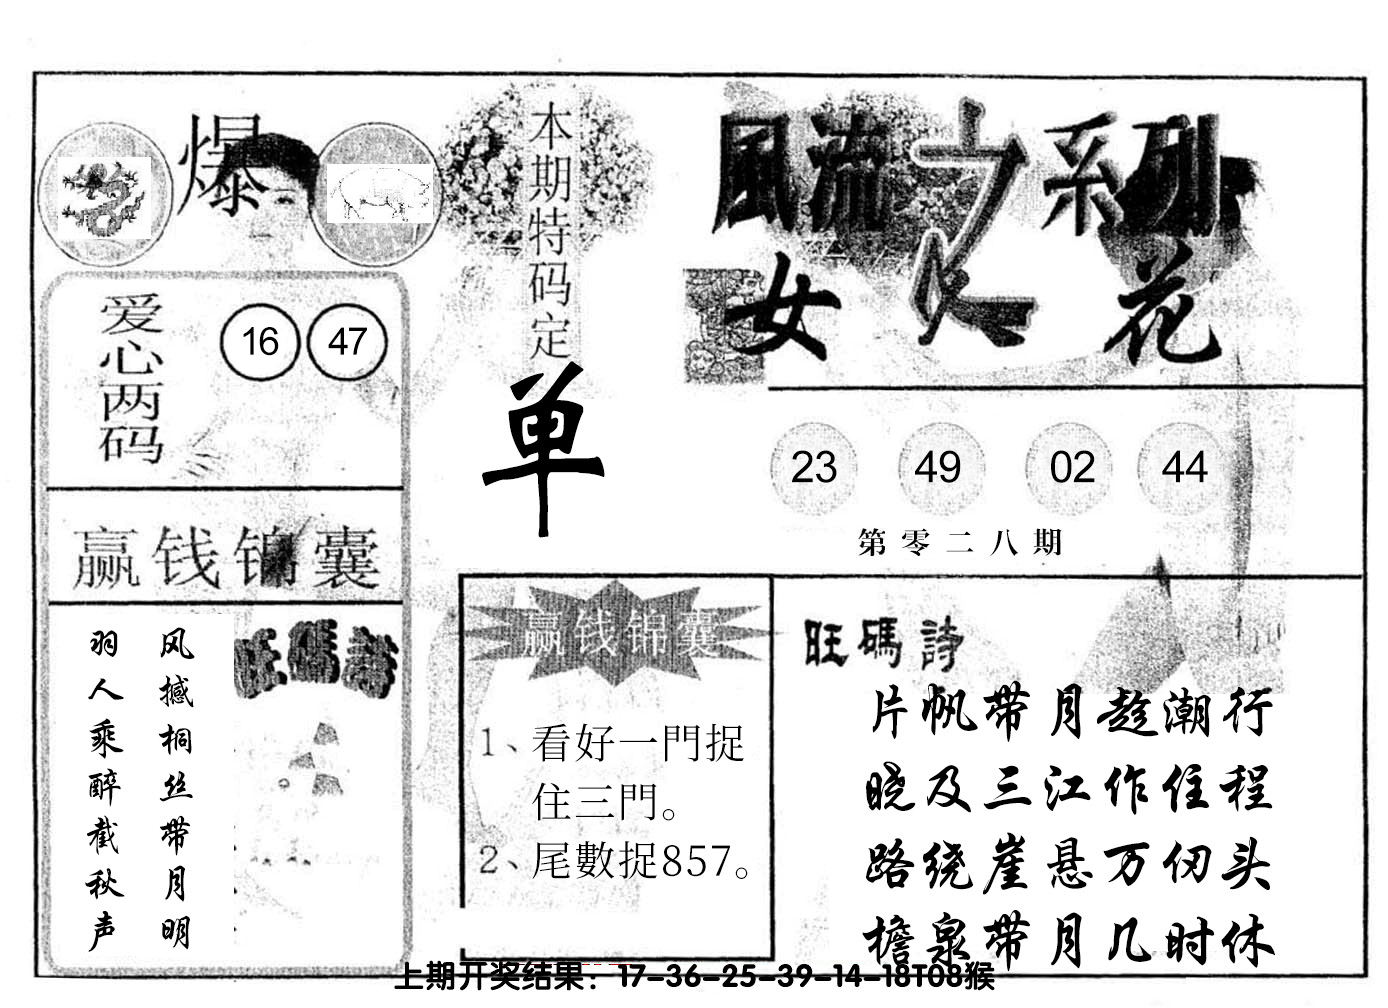 爆
本期特码定
单
風流之系列
女人花
爱心两码
16 47
23 49 02 44
第零二八期
赢钱锦囊
风撼桐丝带月明
羽人乘醉截秋声
旺碼詩
赢钱锦囊
1、看好一門捉
住三門。
2、尾數捉857。
旺碼詩
片帆带月趁潮行
晓及三江作住程
路绕崖悬万仞头
檐泉带月几时休
上期开奖结果：17-36-25-39-14-18T08猴